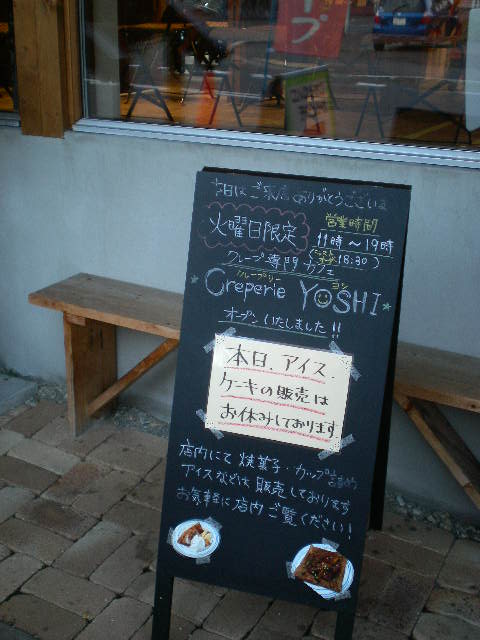 本日はご来店ありがとうございま
火曜日限定
営業時間
11時〜19時
18:30)
クレープ専門カフェ
クレープリー ヨシ
Creperie YOSHI
オープンいたしました!!
本日、アイス、
ケーキの販売は
お休みしております
店内にて 焼菓子・カップ詰め
アイスなどは販売しております
お気軽に店内ご覧ください!